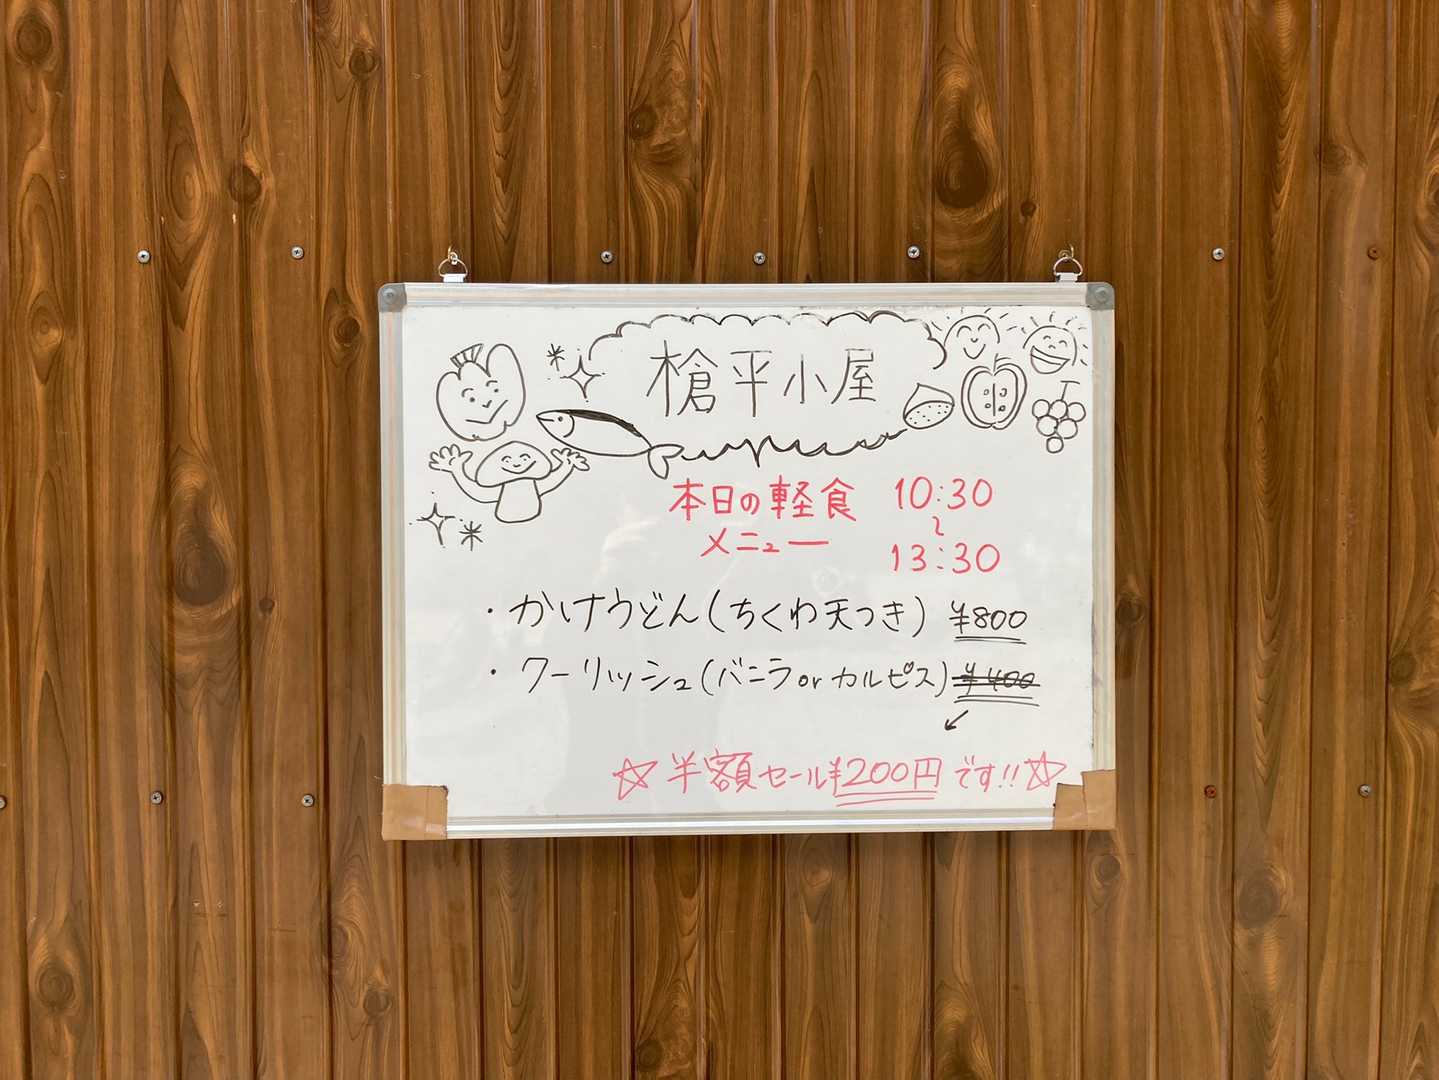 槍平小屋
本日の軽食 10:30
メニュー 〜
13:30
・かけうどん(ちくわ天つき) ¥800
・クーリッシュ(バニラorカルピス) ¥400
☆半額セール¥200円です!!☆